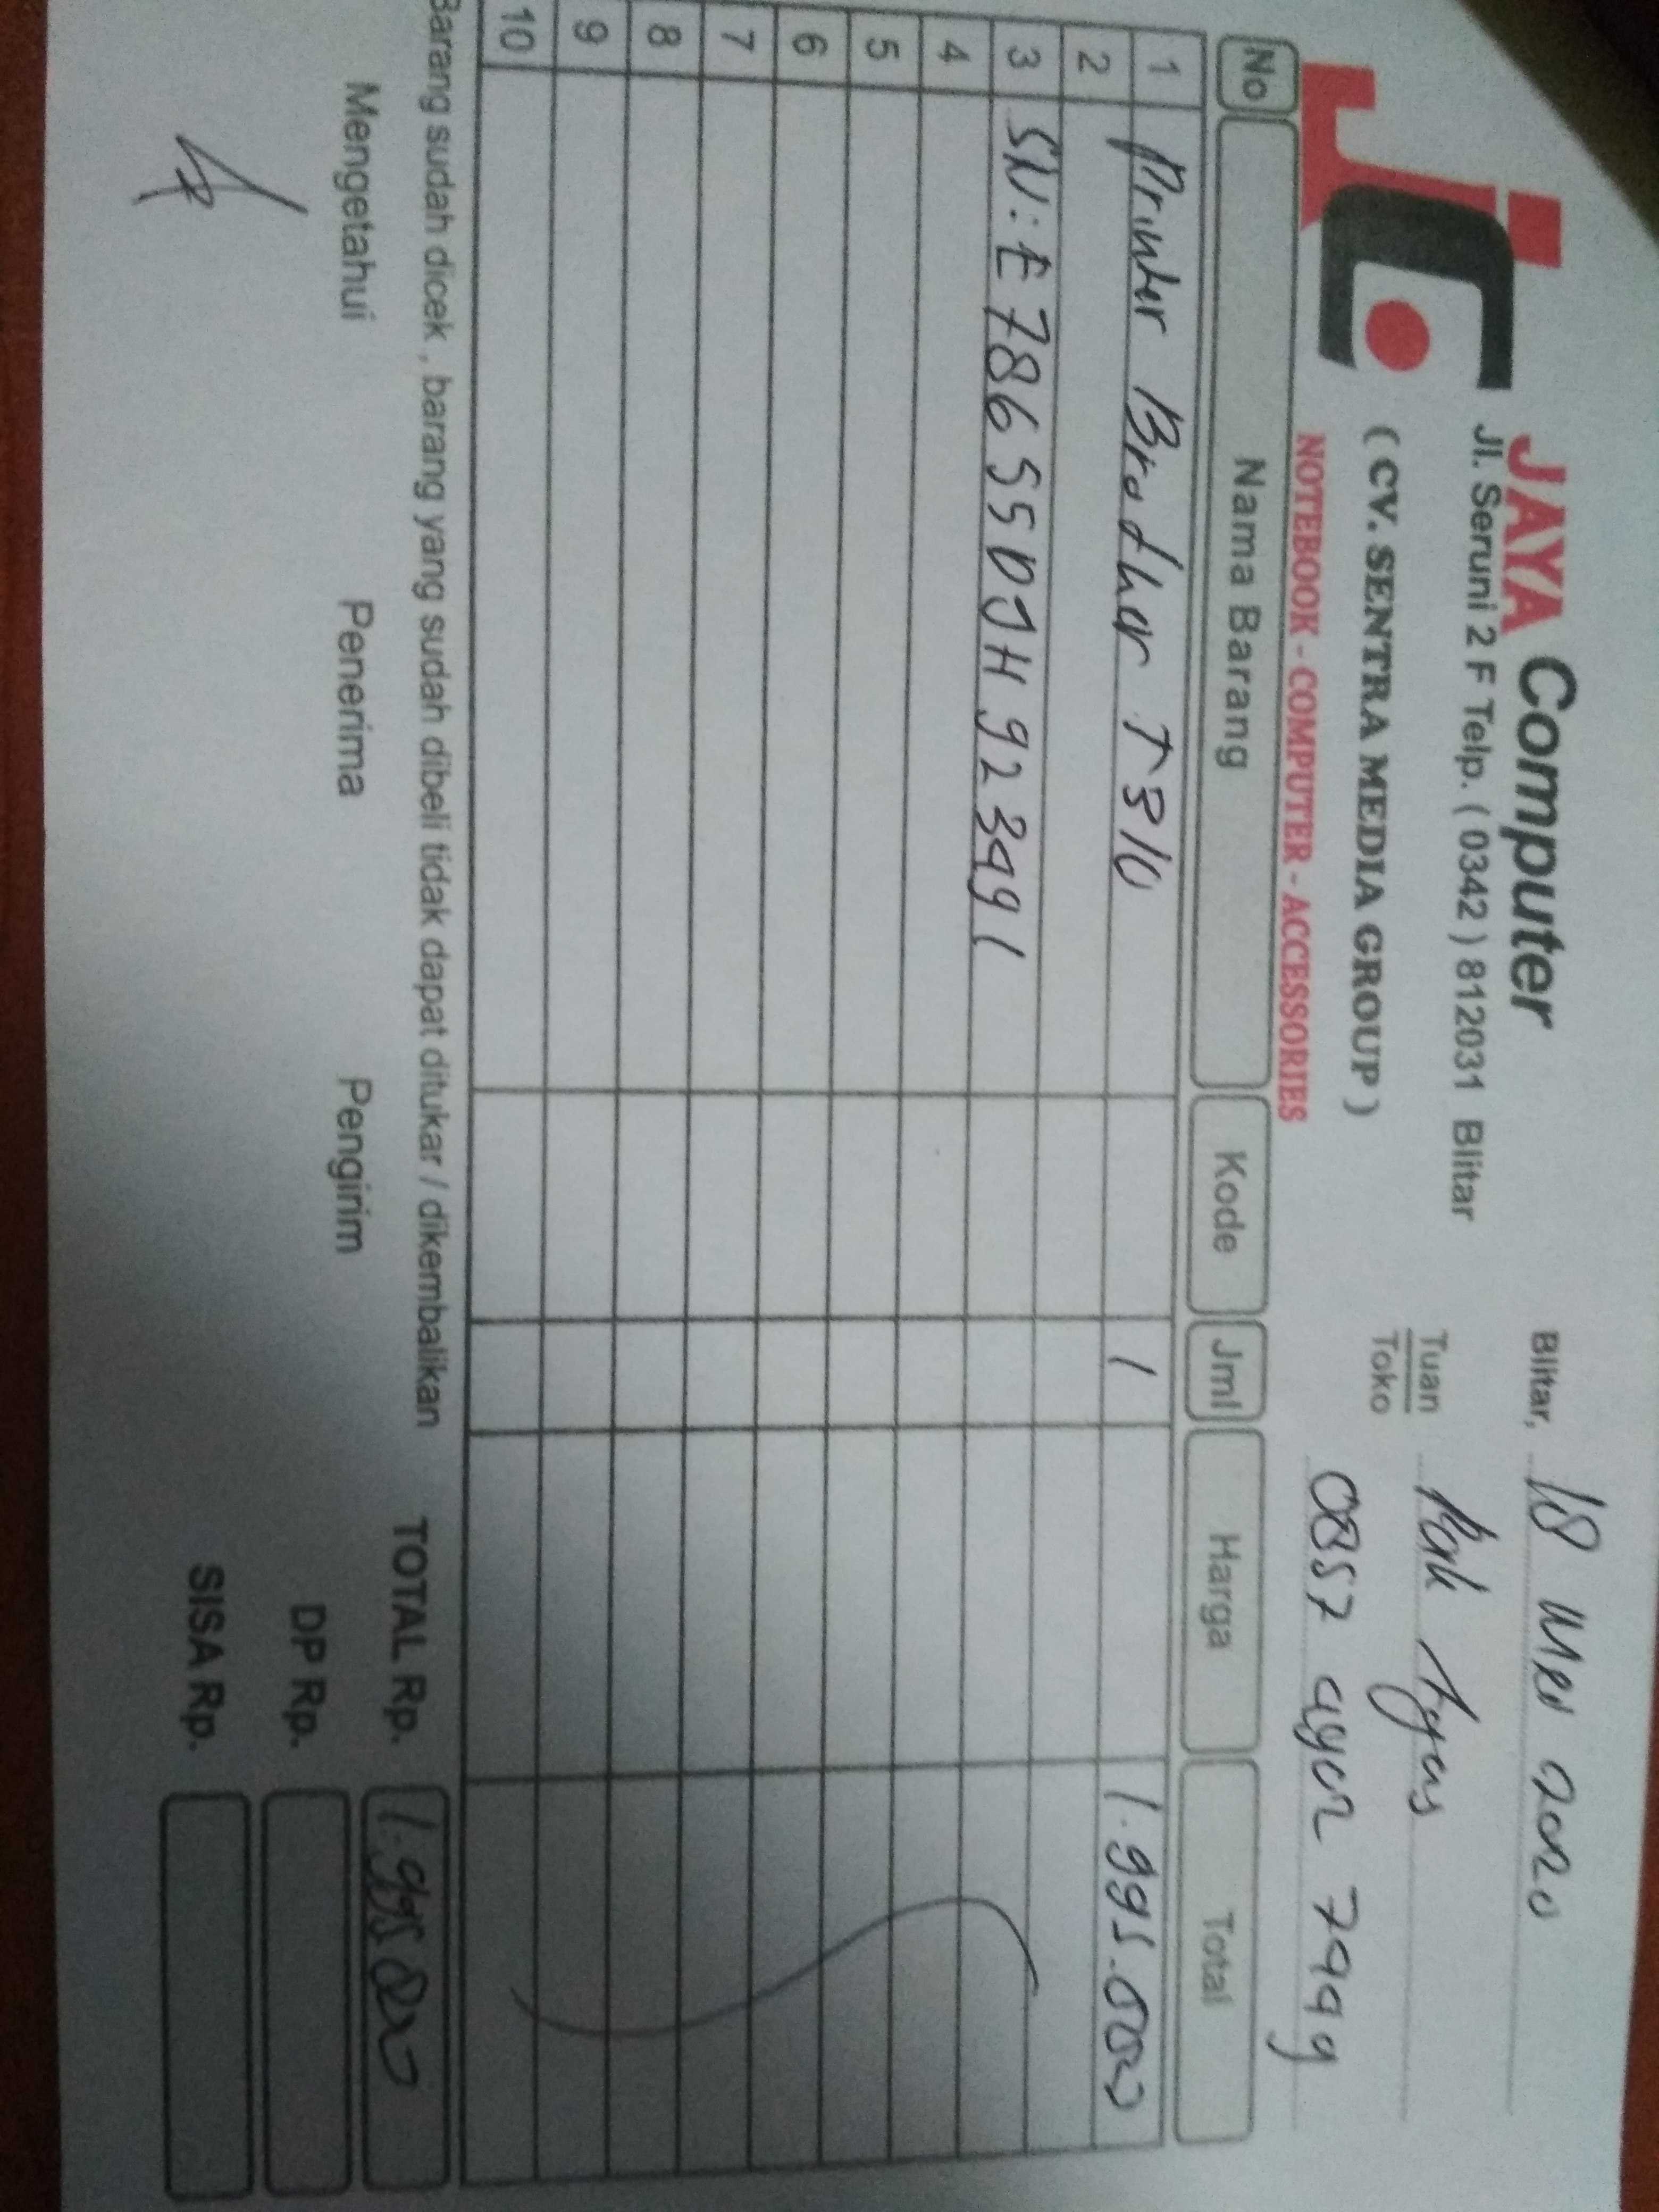 JC
JAYA Computer
Jl. Seruni 2 F Telp. ( 0342 ) 812031 Blitar
( CV. SENTRA MEDIA GROUP )
NOTEBOOK - COMPUTER - ACCESSORIES
Blitar, 18 Mei 2020
Tuan Pak Agus
Toko
0857 4942 7999
No Nama Barang Kode Jml Harga Total
1 Printer Brother T310 1 1.995.000
2
3 SN: E78655D0H923491
4
5
6
7
8
9
10
Barang sudah dicek , barang yang sudah dibeli tidak dapat ditukar / dikembalikan
TOTAL Rp. 1.995.000
Mengetahui Penerima Pengirim
DP Rp.
SISA Rp.